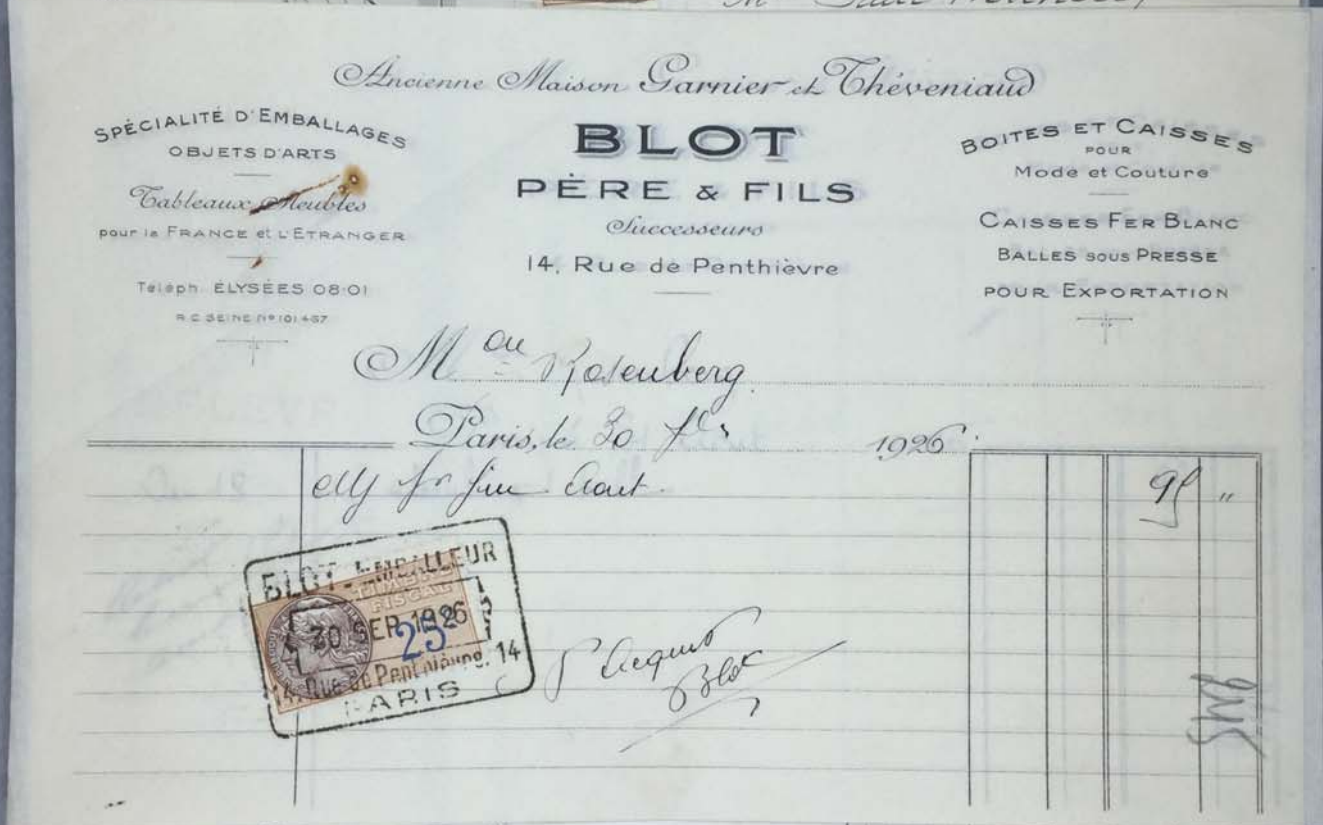 Ancienne Maison Garnier et Théveniaud
SPÉCIALITÉ D'EMBALLAGES
OBJETS D'ARTS
Tableaux Meubles
pour la FRANCE et L'ETRANGER
Téléph. ÉLYSÉES 08-01
R.C. SEINE Nº 101.457
BLOT
PÈRE & FILS
Successeurs
14, Rue de Penthièvre
BOITES ET CAISSES
POUR
Mode et Couture
CAISSES FER BLANC
BALLES SOUS PRESSE
POUR EXPORTATION
M Rosenberg
Paris, le 30 1926
fin Aout 95 "
BLOT - EMBALLEUR
TIMBRE
FISCAL
30 SEP 1926
25c
14, Rue de Penthièvre, 14
PARIS
P acquit
Blot